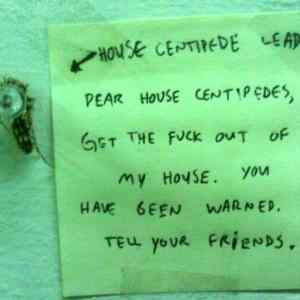 HOUSE CENTIPEDE LEAD
DEAR HOUSE CENTIPEDES,
GET THE FUCK OUT OF
MY HOUSE. YOU
HAVE BEEN WARNED.
TELL YOUR FRIENDS.